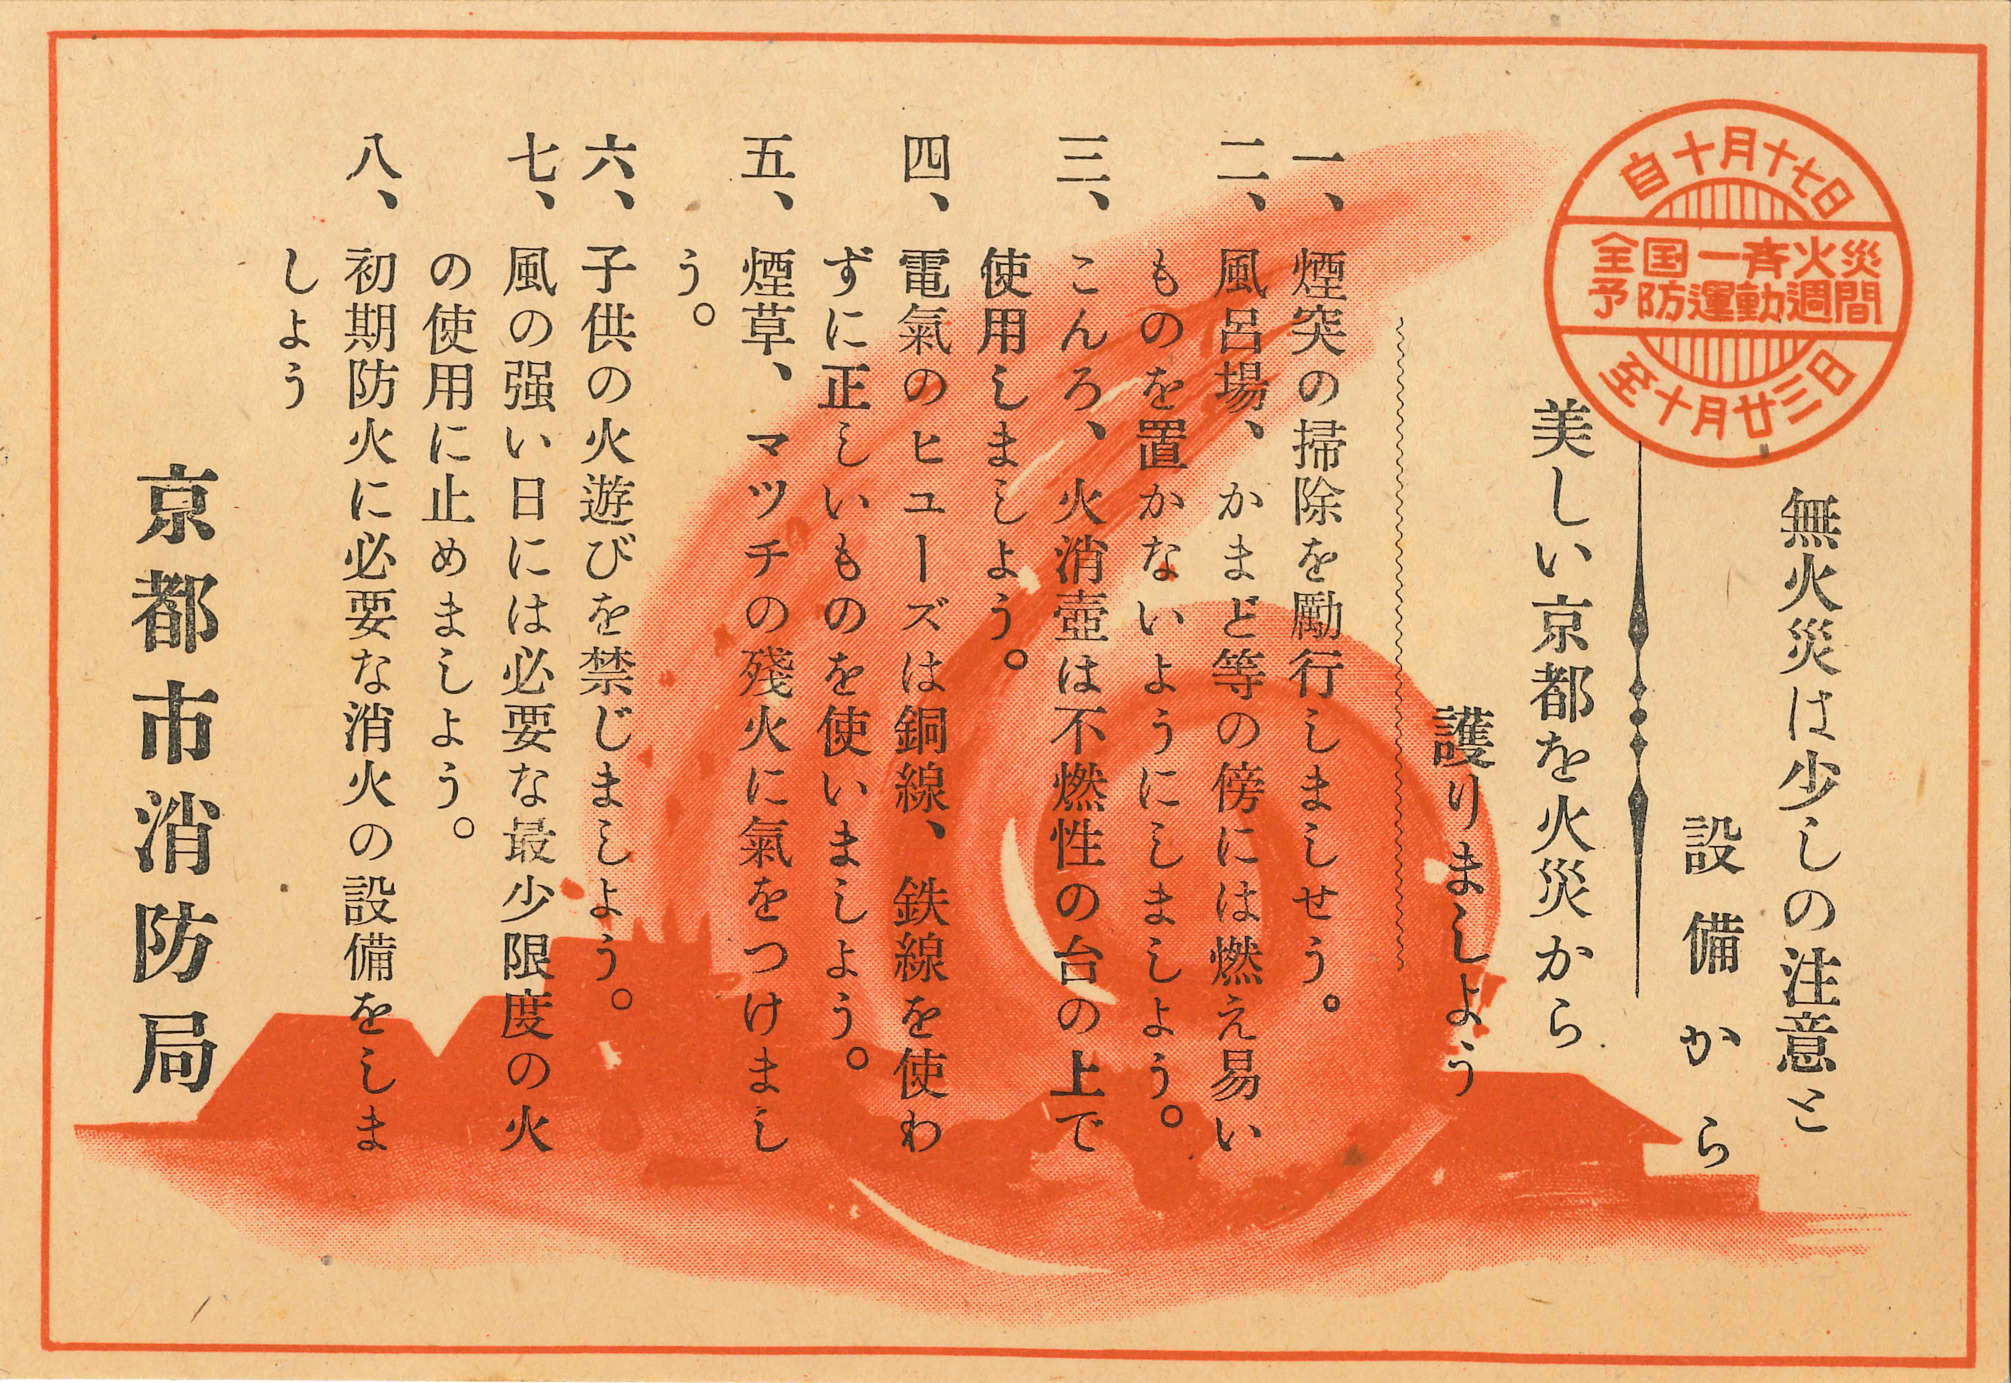 自十月十七日
全国一斉火災
予防運動週間
至十月廿三日
無火災は少しの注意と
設備から
美しい京都を火災から
護りましよう
一、煙突の掃除を勵行しましせう。
二、風呂場、かまど等の傍には燃え易い
ものを置かないようにしましよう。
三、こんろ、火消壺は不燃性の台の上で
使用しましよう。
四、電氣のヒユーズは銅線、鉄線を使わ
ずに正しいものを使いましよう。
五、煙草、マツチの殘火に氣をつけまし
う。
六、子供の火遊びを禁じましよう。
七、風の强い日には必要な最少限度の火
の使用に止めましよう。
八、初期防火に必要な消火の設備をしま
しよう
京都市消防局